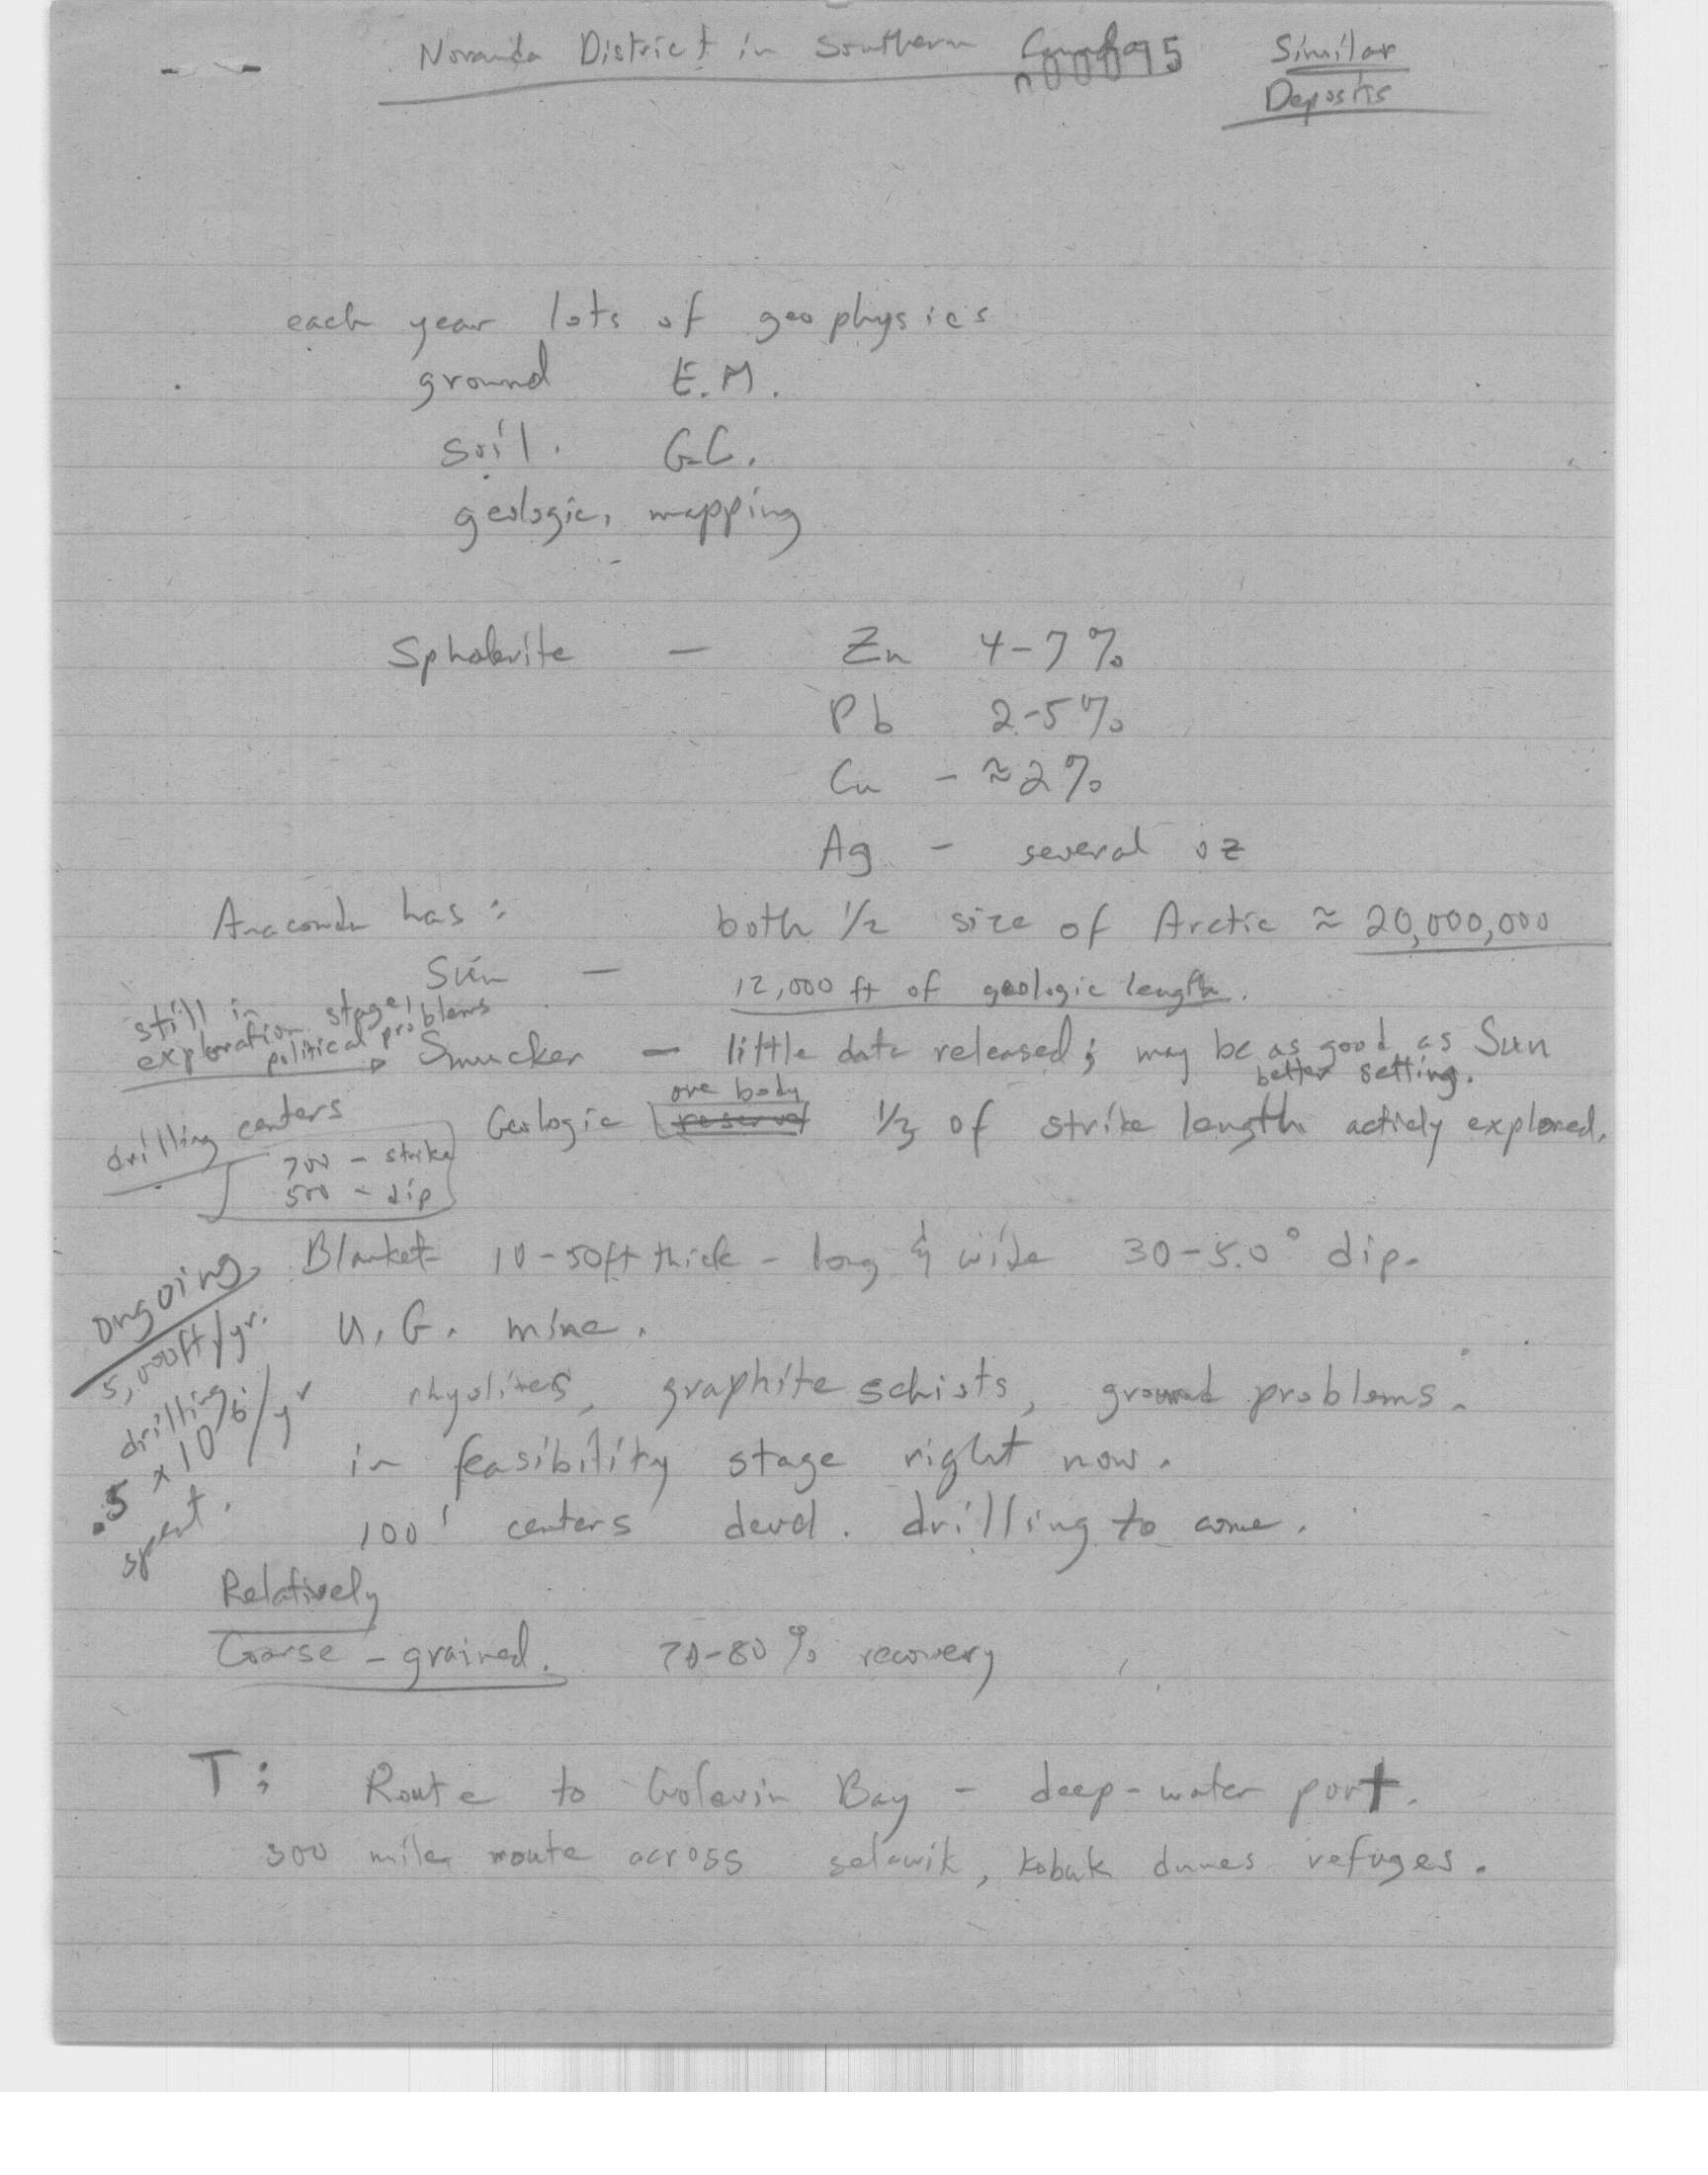 Noranda District in Southern Canada
000095
Similar
Deposits
each year lots of geophysics
ground E.M.
soil. G.C.
geologic, mapping
Sphalerite - Zn 4-7%
Pb 2-5%
Cu - ≈2%
Ag - several oz
Anaconda has: both 1/2 size of Arctic ≈ 20,000,000
Sun - 12,000 ft of geologic length.
still in
exploration stage,
political problems
Smucker - little data released; may be as good as Sun
better setting.
drilling centers
700 - strike
500 - dip
one body
Geologic reserve 1/3 of strike length activly explored.
Blanket 10-50ft thick - long & wide 30-50° dip.
U.G. mine.
ongoing
5,000ft/yr.
drilling
.5 x 10^6/yr
spent.
rhyolites, graphite schists, ground problems.
in feasibility stage right now.
100' centers devel. drilling to come.
Relatively
Coarse-grained. 70-80% recovery
T: Route to Golovin Bay - deep-water port.
300 mile route across selawik, Kobuk dunes refuges.